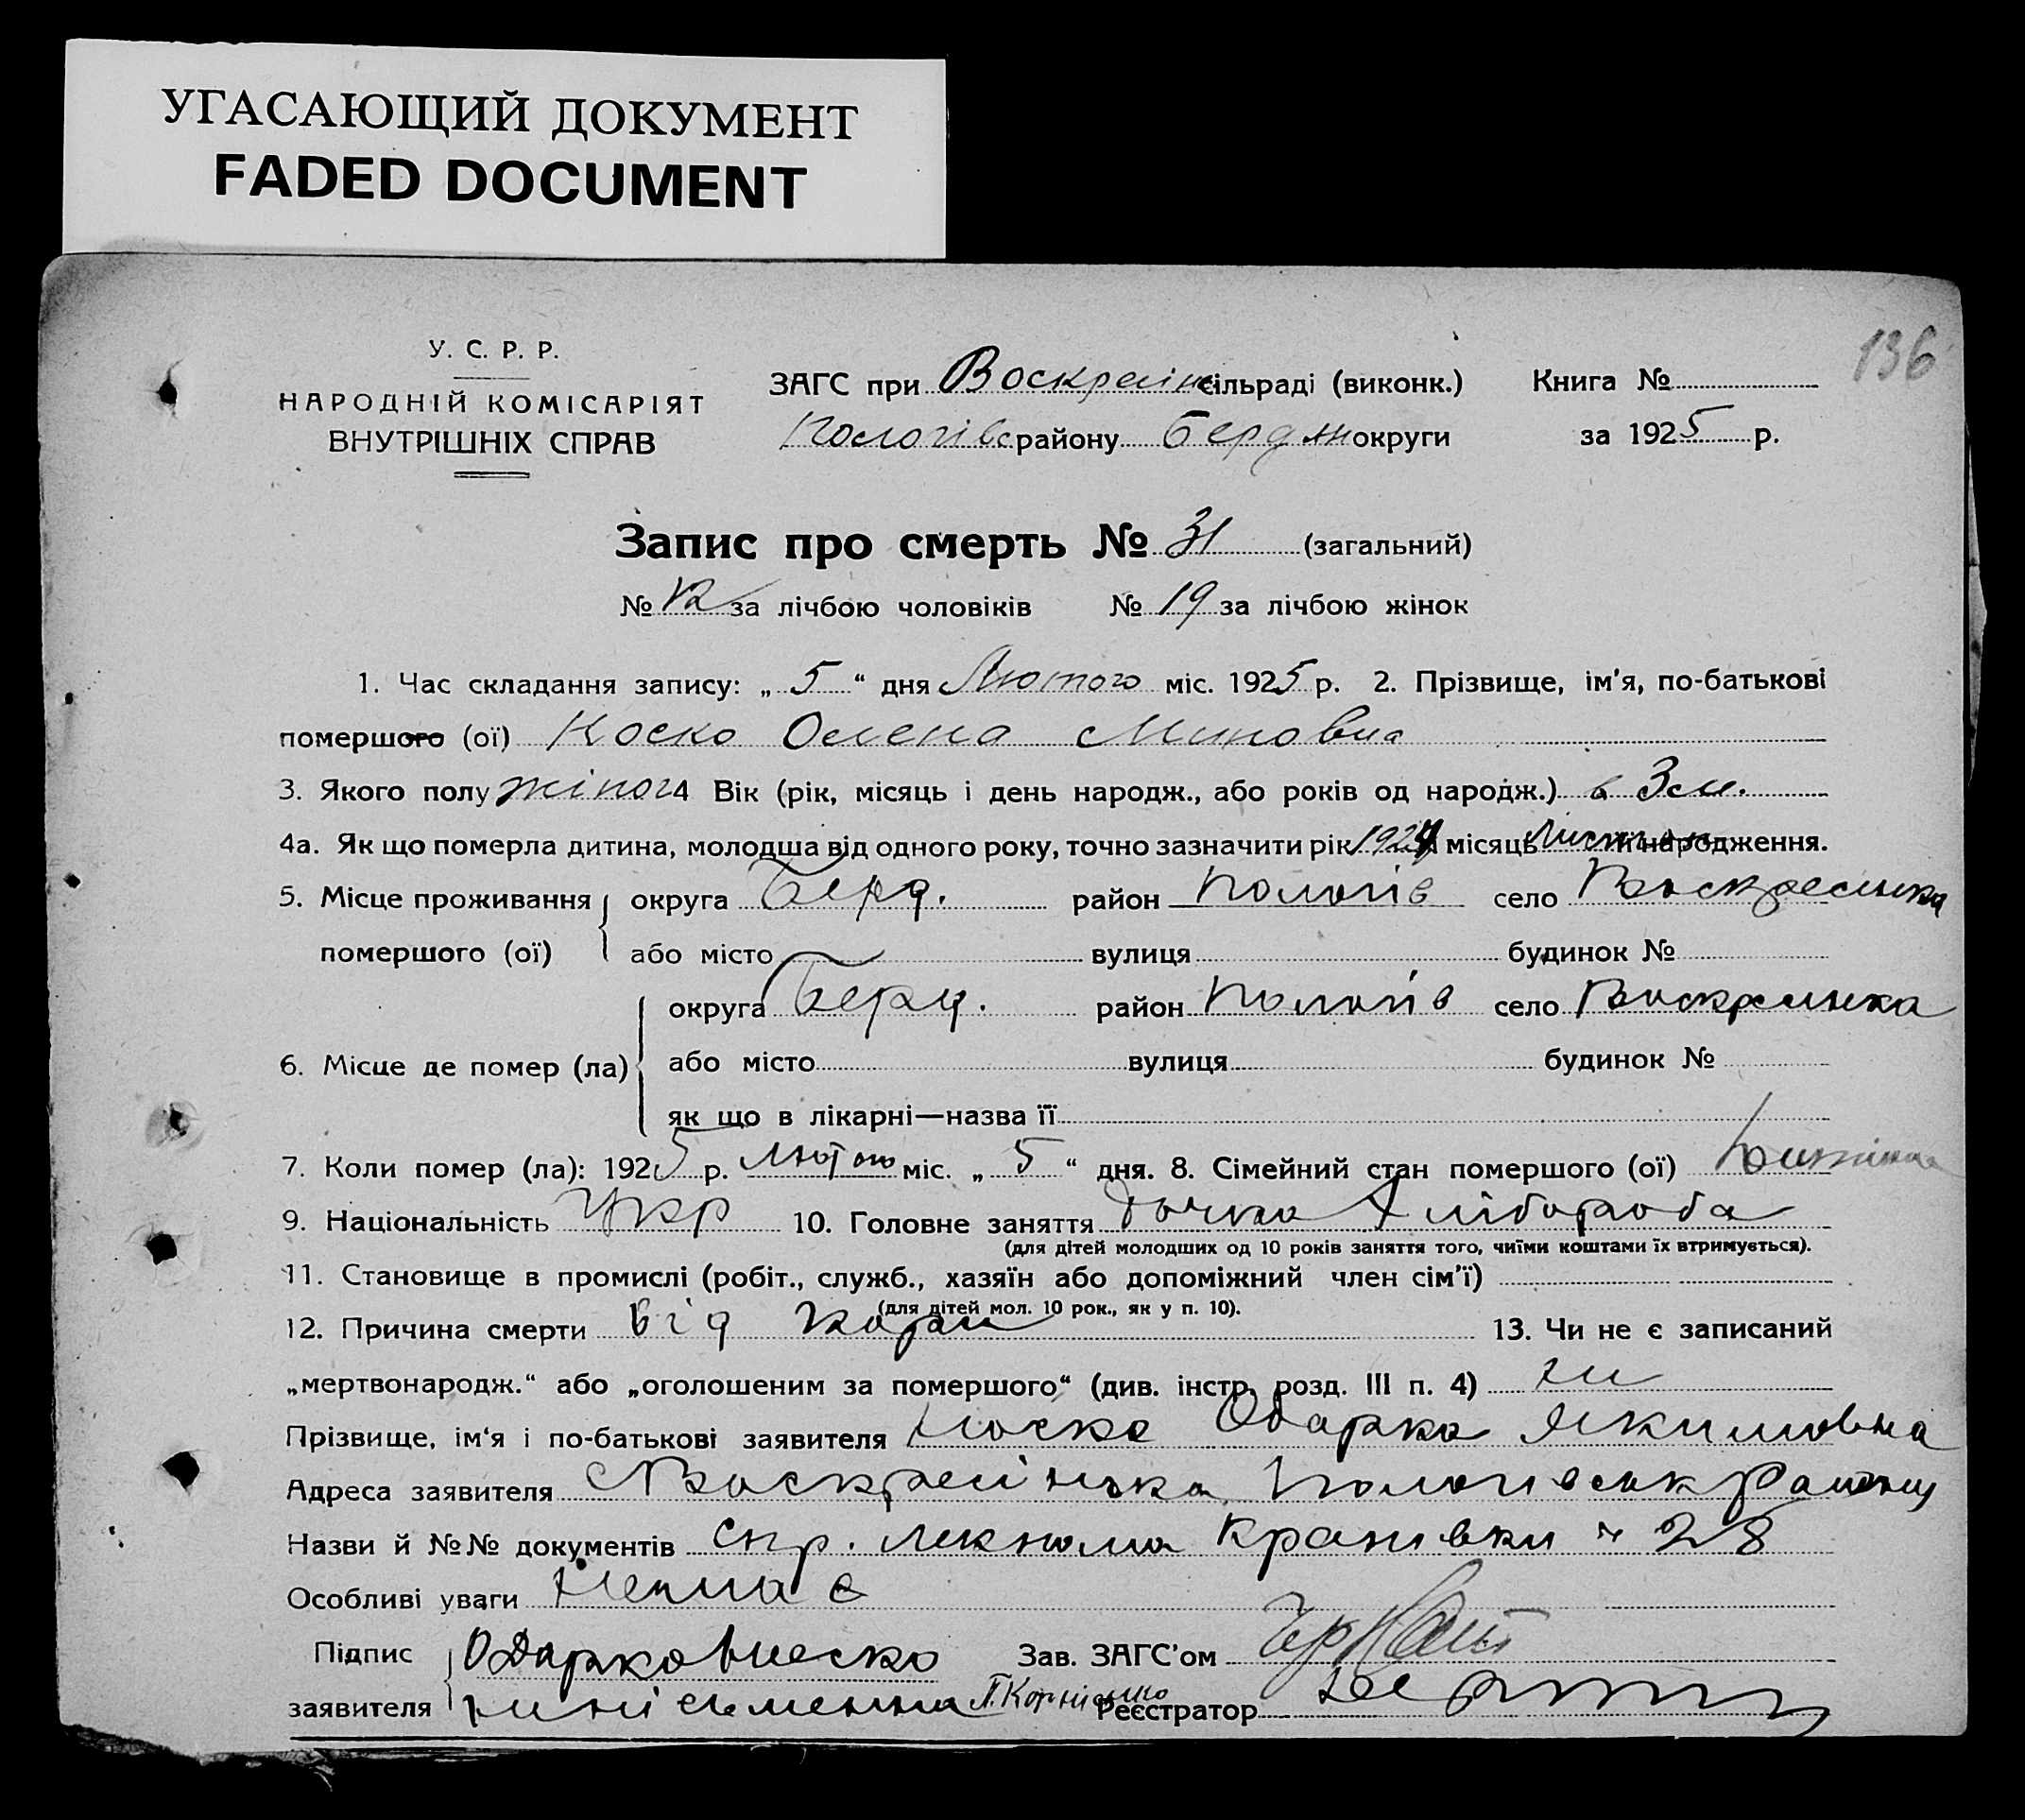 УГАСАЮЩИЙ ДОКУМЕНТ
FADED DOCUMENT
136
У. С. Р. Р.
НАРОДНІЙ КОМІСАРІЯТ
ВНУТРІШНІХ СПРАВ
ЗАГС при Воскресінс сільраді (виконк.) Книга №
Пологівс району Бердян округи за 1925 р.
Запис про смерть № 31 (загальний)
№ 12 за лічбою чоловіків № 19 за лічбою жінок
1. Час складання запису: „ 5 “ дня Лютого міс. 1925 р. 2. Прізвище, ім'я, по-батькові
помершого (ої) Носко Олена Миновна
3. Якого полу жіноч 4 Вік (рік, місяць і день народж., або років од народж.) в 3 м.
4а. Як що померла дитина, молодша від одного року, точно зазначити рік 1924 місяць народження.
5. Місце проживання округа Берд. район Пологів село Воскресинка
помершого (ої) або місто вулиця будинок №
округа Берд. район Пологів село Воскресинка
6. Місце де помер (ла) або місто вулиця будинок №
як що в лікарні—назва її
7. Коли помер (ла): 1925 р. Лютого міс. „ 5 “ дня. 8. Сімейний стан помершого (ої)
9. Національність Укр 10. Головне заняття дочка хлібороба
(для дітей молодших од 10 років заняття того, чиїми коштами їх втримується).
11. Становище в промислі (робіт., служб., хазяїн або допоміжний член сім'ї)
(для дітей мол. 10 рок., як у п. 10).
12. Причина смерти від 13. Чи не є записаний
„мертвонародж.“ або „оголошеним за помершого“ (див. інстр. розд. III п. 4) ни
Прізвище, ім'я і по-батькові заявителя Носко Одарка Якимовна
Адреса заявителя Воскресінка Пологівськ Району
Назви й №№ документів спр. лекпома № 28
Особливі уваги Немає
Підпис Одарка Носко Зав. ЗАГС'ом
заявителя неписьменна Корнієнко Реєстратор